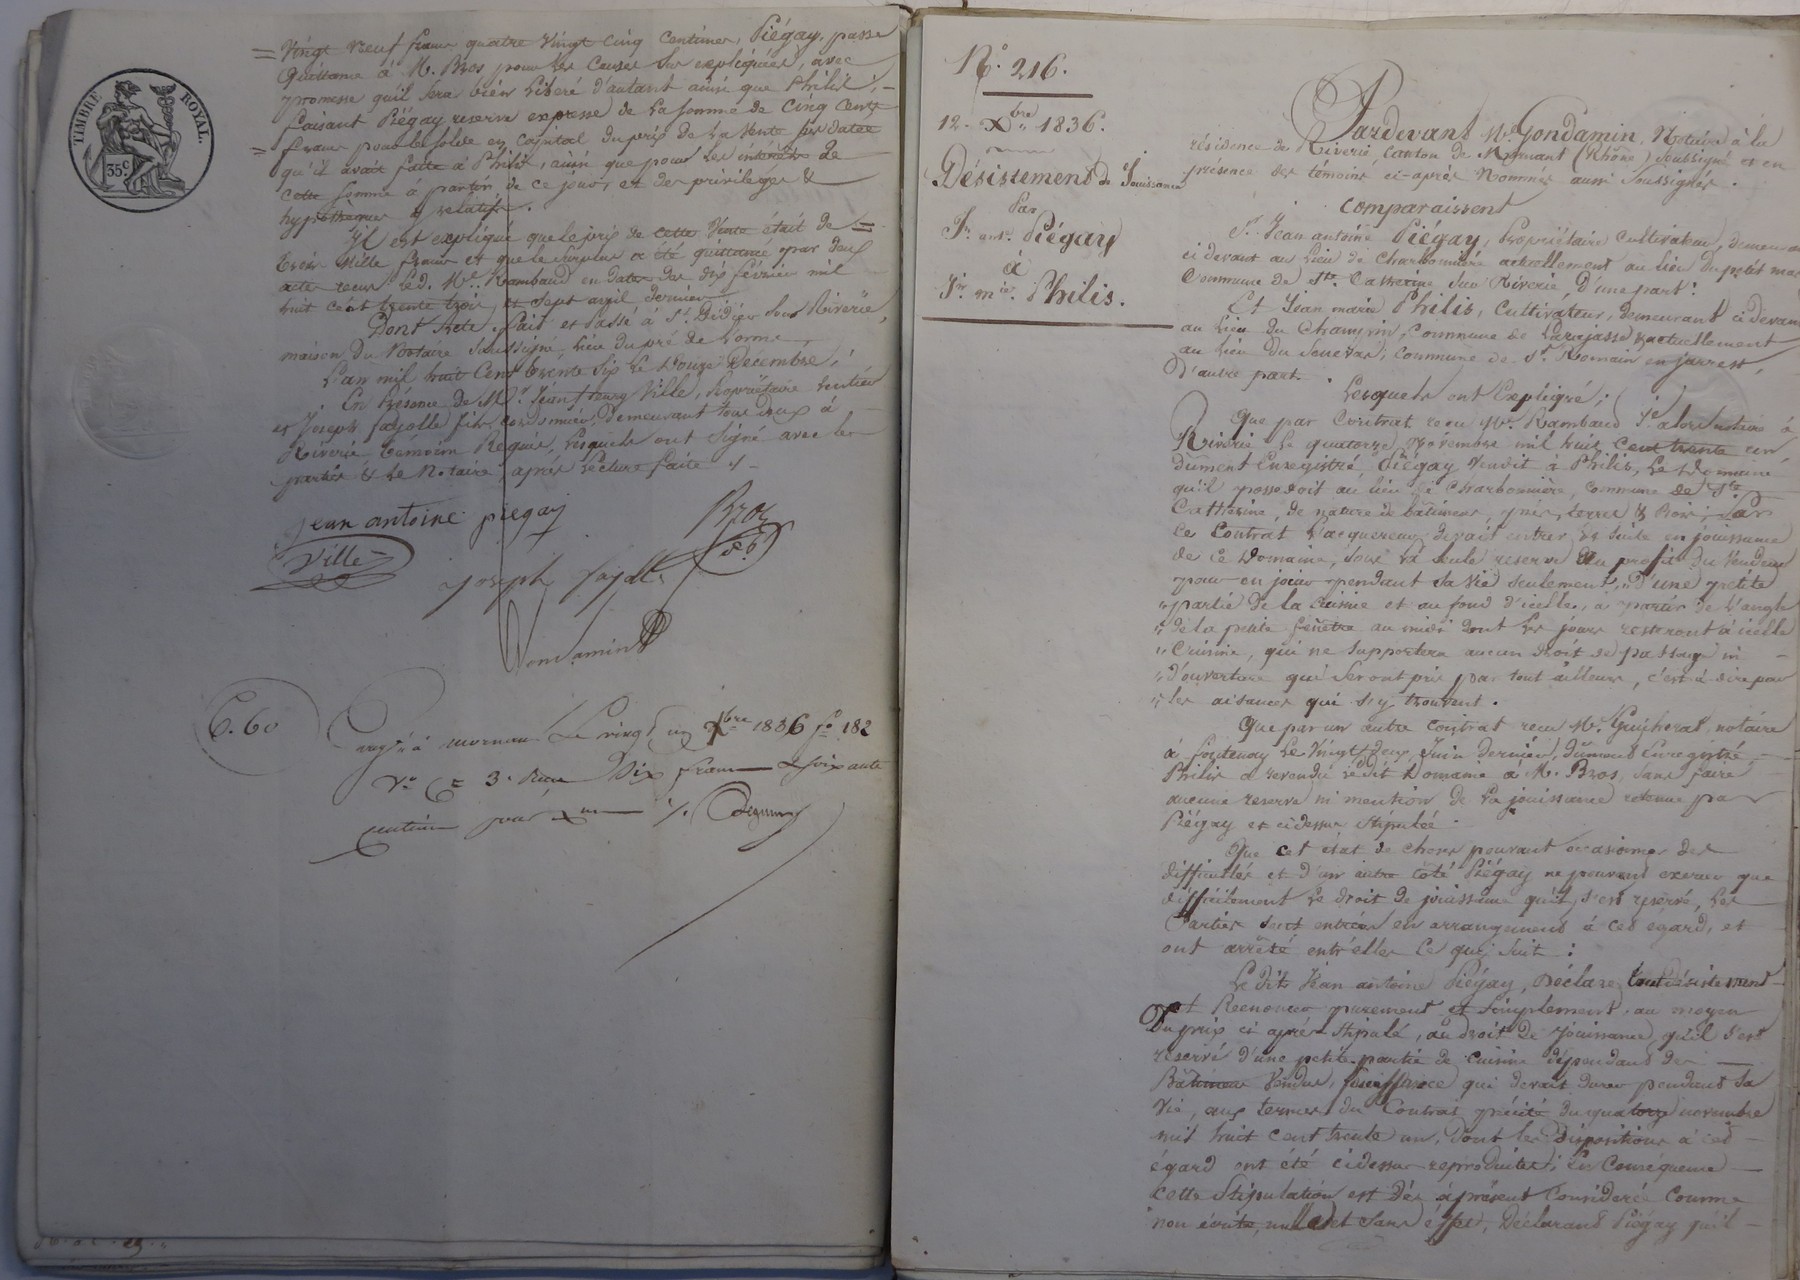 Vingt neuf francs quatre vingt cinq centimes, Piégay, passe
Quittance à M. Bros pour les causes sus expliquées, avec
promesse qu'il sera bien libéré d'autant ainsi que Philis;
faisant Piégay reserve expresse de la somme de cinq cents
francs pour le solde en capital du prix de la vente sus datée
qu'il avait faite à Philis, ainsi que pour les intérêts de
cette somme à partir de ce jour et des privilèges &
hypothèques y relatifs.
Il est expliqué que le prix de cette vente était de
trois mille francs et que le surplus a été quittancé par deux
actes reçus led. Me. Rambaud en date des dix février mil
huit cent trente trois et sept avril dernier
Dont Acte, fait et Passé à St. Didier sous Riverie,
maison du Notaire soussigné, lieu du pré de Lorme,
L'an mil huit Cent trente six Le Douze Decembre,
En Présence de Mr. Jean henry Ville, Propriétaire rentier
et Joseph fayolle fils, cordonnier, Demeurant tous deux à
Riverie, témoins Requis, lesquels ont signé avec les
parties & le Notaire, après Lecture faite ./.
TIMBRE ROYAL.
35 c.
jean antoine piegay
Bros
Ville
joseph fayolle
Gondamin
6.60
Enregistré à mornant Le vingt un Xbre 1836 fo 182
Vo Ce 3. Reçu Six francs soixante
centimes pour
No. 216.
12. Xbre 1836.
Désistement de Jouissance
Par
Jn. ant. Piégay
à
Jn. mie. Philis.
Pardevant Me. Gondamin, Notaire à la
résidence de Riverie, canton de Mornant (Rhône) soussigné et en
présence des témoins ci-après Nommés aussi soussignés.
Comparaissent
Sr. Jean antoine Piégay, Propriétaire Cultivateur, demeurant
ci devant au Lieu de Charbonnière actuellement au lieu du petit
Commune de Ste. Catherine sur Riverie, D'une part;
Et Jean marie Philis, Cultivateur, demeurant ci devant
au lieu du Champin, Commune de Larajasse & actuellement
au Lieu du Souvrat, commune de St. Romain en jarrest,
D'autre part.
Lesquels ont Expliqué;
Que par Contrat reçu Me. Rambaud Je. alors notaire à
Riverie le quatorze novembre mil huit cent trente un,
dûment Enregistré, Piégay vendit à Philis, le Domaine
qu'il possedoit au lieu de Charbonnière, commune de Ste.
Catherine, de nature de batiments, prés, terres & bois; Par
ce contrat L'acquereur devait entrer de suite en jouissance
de ce Domaine, sous la seule reserve au profit du Vendeur
pour en jouir pendant sa vie seulement, "D'une petite
"partie de la cuisine et au fond d'icelle, à partir de l'angle
"de la petite fenêtre au midi dont les jours resteront à icelle
"Cuisine, qui ne supportera aucun droit de passage ni
"d'ouverture qui seront pris par tout ailleurs, c'est à dire par
"les aisances qui s'y trouvent.
Que par un autre contrat reçu Me. Guicherat, notaire
à fontenay le Vingt deux Juin dernier, dûment Enregistré,
Philis a revendu ledit Domaine à M. Bros, sans faire
aucune reserve ni mention de la jouissance retenue par
Piégay et cidessus stipulée.
Que cet état de choses pouvant occasionner des
difficultés et d'un autre coté Piégay ne pouvant exercer que
difficilement le droit de jouissance qu'il s'est reservé, les
Parties sont entrées en arrangement à cet égard, et
ont arrêté entr'elles ce qui suit:
Ledit Jean antoine Piégay, Déclare, tout désistement
Et Renoncer purement et simplement, au moyen
Du prix ci après stipulé, au droit de jouissance qu'il s'est
reservé d'une petite partie de cuisine dépendant des
Bâtimens vendus, jouissance qui devait durer pendant sa
Vie, aux termes du Contrat précité du quatorze novembre
mil huit cent trente un, dont les dispositions à cet
égard ont été cidessus reproduites; En Conséquence
cette stipulation est dès aprésent considerée comme
non écrite, nulle et sans effet, Déclarant Piégay qu'il